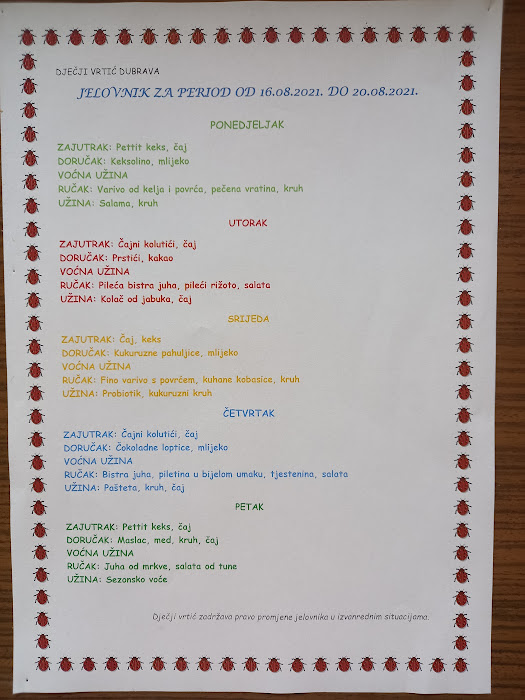 DJEČJI VRTIĆ DUBRAVA
JELOVNIK ZA PERIOD OD 16.08.2021. DO 20.08.2021.
PONEDJELJAK
ZAJUTRAK: Pettit keks, čaj
DORUČAK: Keksolino, mlijeko
VOĆNA UŽINA
RUČAK: Varivo od kelja i povrća, pečena vratina, kruh
UŽINA: Salama, kruh
UTORAK
ZAJUTRAK: Čajni kolutići, čaj
DORUČAK: Prstići, kakao
VOĆNA UŽINA
RUČAK: Pileća bistra juha, pileći rižoto, salata
UŽINA: Kolač od jabuka, čaj
SRIJEDA
ZAJUTRAK: Čaj, keks
DORUČAK: Kukuruzne pahuljice, mlijeko
VOĆNA UŽINA
RUČAK: Fino varivo s povrćem, kuhane kobasice, kruh
UŽINA: Probiotik, kukuruzni kruh
ČETVRTAK
ZAJUTRAK: Čajni kolutići, čaj
DORUČAK: Čokoladne loptice, mlijeko
VOĆNA UŽINA
RUČAK: Bistra juha, piletina u bijelom umaku, tjestenina, salata
UŽINA: Pašteta, kruh, čaj
PETAK
ZAJUTRAK: Pettit keks, čaj
DORUČAK: Maslac, med, kruh, čaj
VOĆNA UŽINA
RUČAK: Juha od mrkve, salata od tune
UŽINA: Sezonsko voće
Dječji vrtić zadržava pravo promjene jelovnika u izvanrednim situacijama.